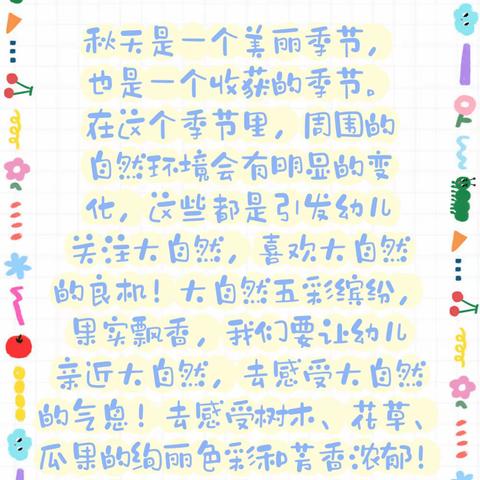 秋天是一个美丽季节，
也是一个收获的季节。
在这个季节里，周围的
自然环境会有明显的变
化，这些都是引发幼儿
关注大自然，喜欢大自然
的良机！大自然五彩缤纷，
果实飘香，我们要让幼儿
亲近大自然，去感受大自然
的气息！去感受树木、花草、
瓜果的绚丽色彩和芳香浓郁！